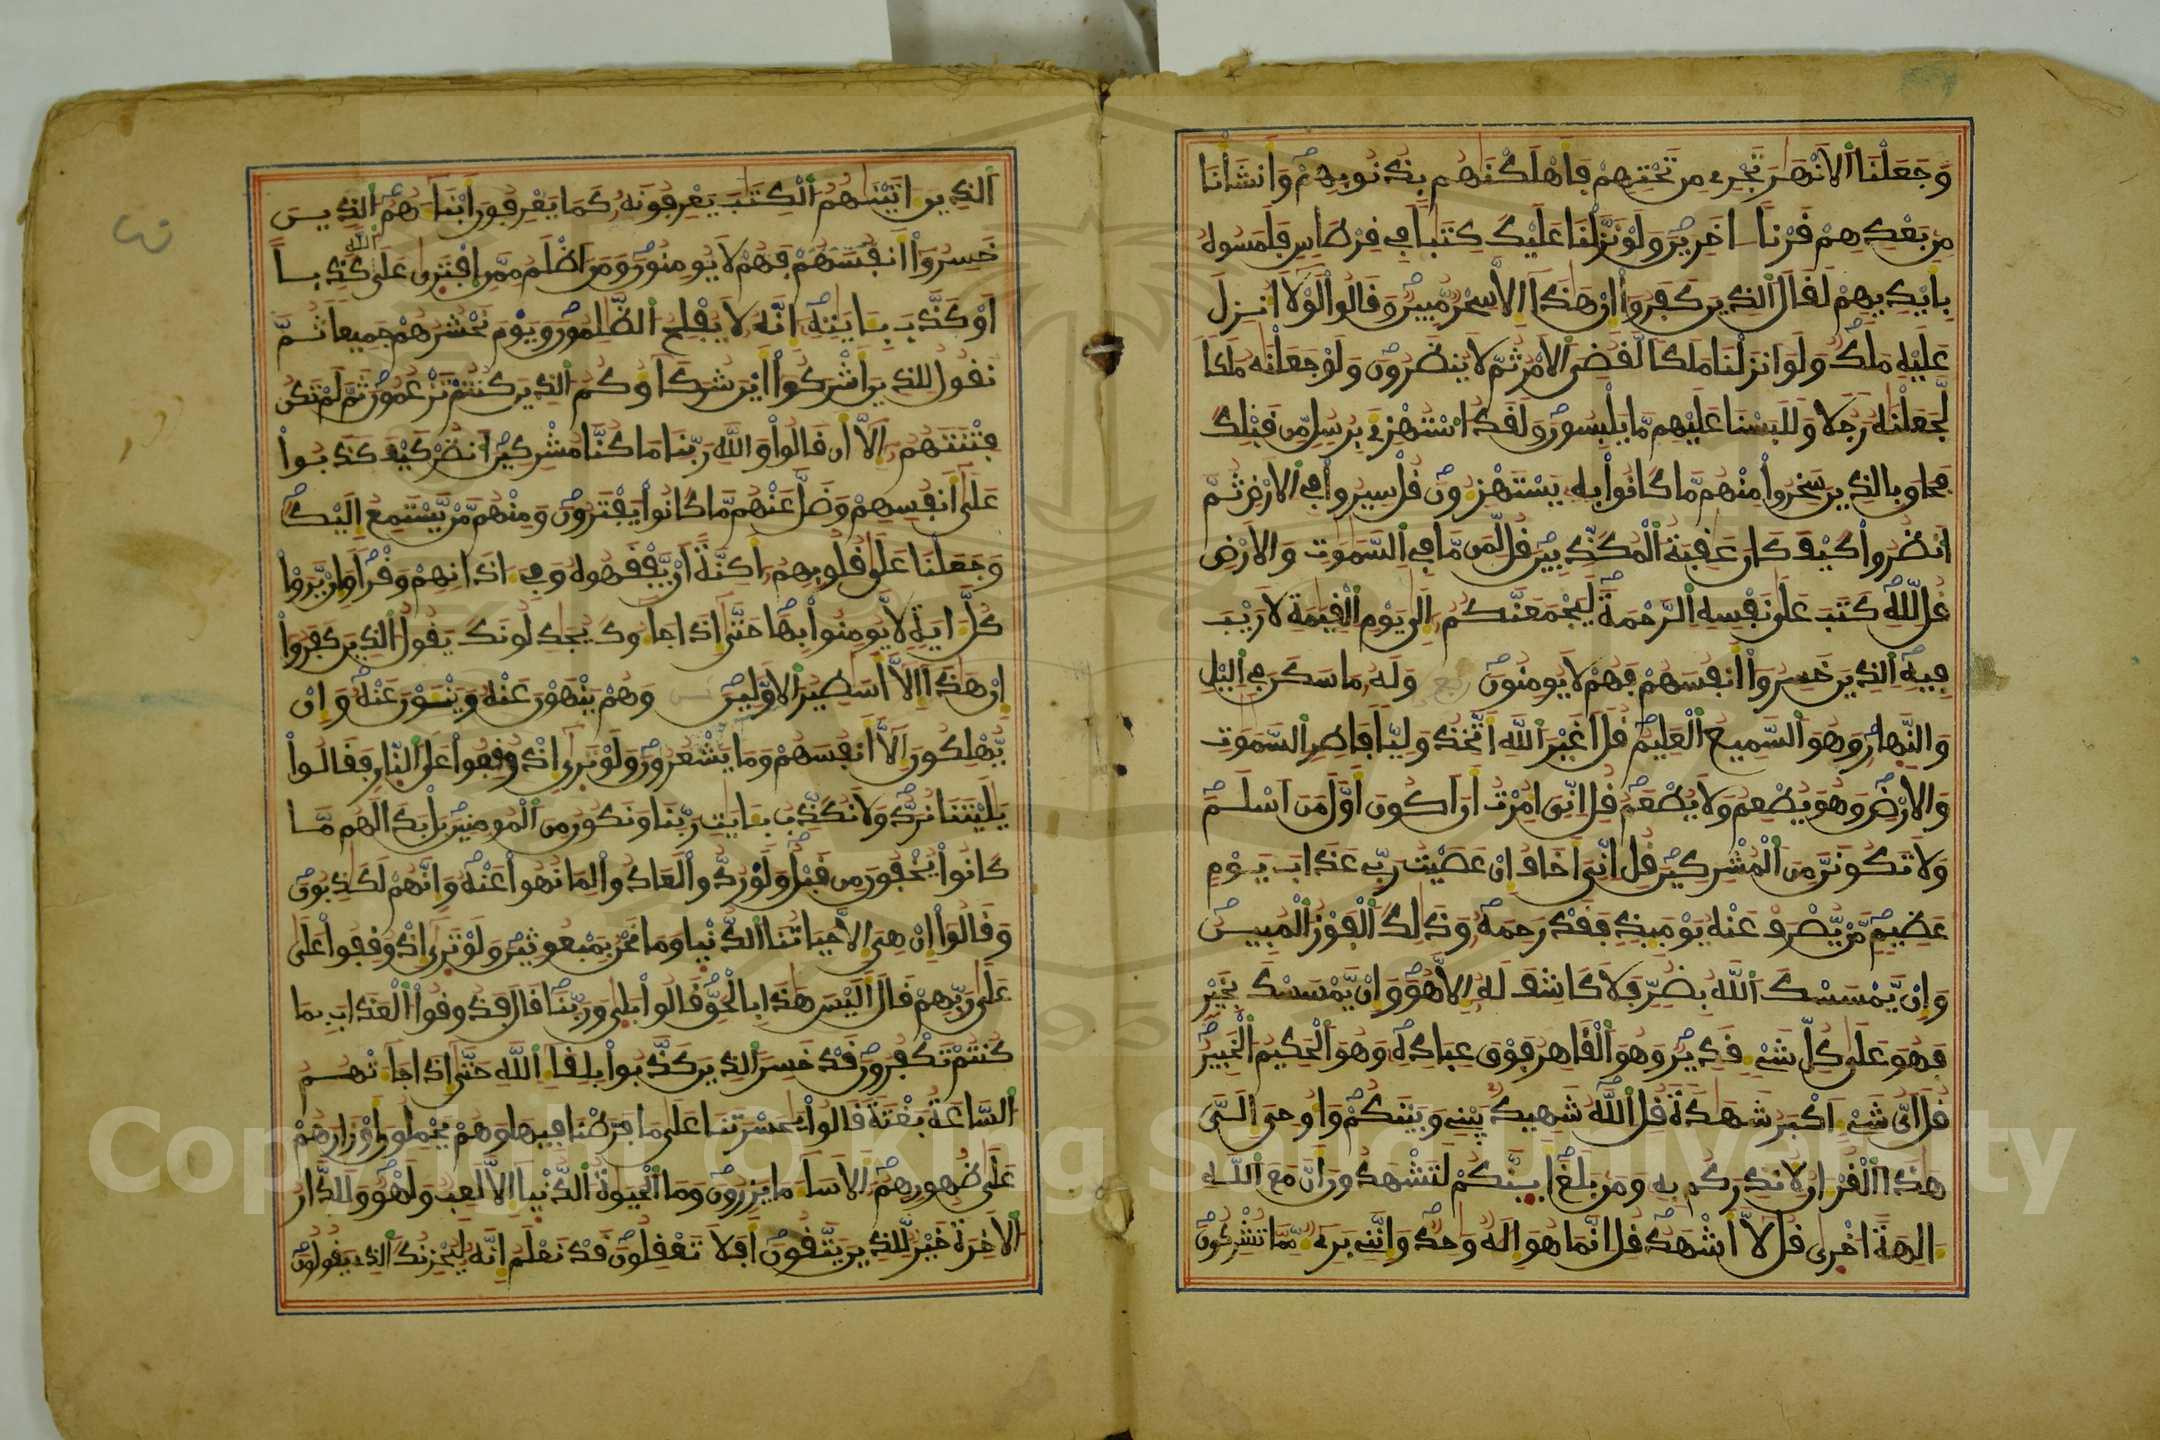 وَجَعَلْنَا اَلَانْهَٰرَ تَجْرِے مِن تَحْتِهِمْ فَأَهْلَكْنَٰهُم بِذُنُوبِهِمْ وَأَنشَأْنَا
مِنۢ بَعْدِهِمْ قَرْناً اٰخَرِينَ وَلَوْ نَزَّلْنَا عَلَيْكَ كِتَٰباً فِے قِرْطَاسٍ فَلَمَسُوهُ
بِأَيْدِيهِمْ لَقَالَ اَلذِينَ كَفَرُوٓاْ إِنْ هَٰذَآ إِلَّا سِحْرٌ مُّبِينٌ وَقَالُواْ لَوْلَآ أُنزِلَ
عَلَيْهِ مَلَكٌ وَلَوَ اَنزَلْنَا مَلَكاً لَّقُضِيَ اَلَامْرُ ثُمَّ لَا يُنظَرُونَ وَلَوْ جَعَلْنَٰهُ مَلَكاً
لَّجَعَلْنَٰهُ رَجُلًا وَلَلَبَسْنَا عَلَيْهِم مَّا يَلْبِسُونَ وَلَقَدُ اسْتُهْزِئَ بِرُسُلٍ مِّن قَبْلِكَ
فَحَاقَ بِالذِينَ سَخِرُواْ مِنْهُم مَّا كَانُواْ بِهِۦ يَسْتَهْزِءُونَ قُلْ سِيرُواْ فِے اِلَارْضِ ثُمَّ
اَنظُرُواْ كَيْفَ كَانَ عَٰقِبَةُ اُلْمُكَذِّبِينَ قُل لِّمَن مَّا فِے اِلسَّمَٰوَٰتِ وَالَارْضِ
قُل لِّلهِ كَتَبَ عَلَىٰ نَفْسِهِ اِلرَّحْمَةَ لَيَجْمَعَنَّكُمُۥٓ إِلَىٰ يَوْمِ اِلْقِيَٰمَةِ لَا رَيْبَ
فِيهِ اِلذِينَ خَسِرُوٓاْ أَنفُسَهُمْ فَهُمْ لَا يُومِنُونَ وَلَهُۥ مَا سَكَنَ فِے اِليْلِ
وَالنَّهارِ وَهُوَ اَلسَّمِيعُ اُلْعَلِيمُ قُلَ اَغَيْرَ اَللَّهِ أَتَّخِذُ وَلِيّاً فَاطِرِ اِلسَّمَٰوَٰتِ
وَالَارْضِ وَهُوَ يُطْعِمُ وَلَا يُطْعَمُ قُلِ انِّيَ أُمِرْتُ أَنَ اَكُونَ أَوَّلَ مَنَ اَسْلَمَ
وَلَا تَكُونَنَّ مِنَ اَلْمُشْرِكِينَ قُلِ انِّيَ أَخَافُ إِنْ عَصَيْتُ رَبِّے عَذَابَ يَوْمٍ
عَظِيمٍ مَّنْ يُّصْرَفْ عَنْهُ يَوْمَئِذٍ فَقَدْ رَحِمَهُۥ وَذَٰلِكَ اَلْفَوْزُ اُلْمُبِينُ
وَإِنْ يَّمْسَسْكَ اَللَّهُ بِضُرٍّ فَلَا كَاشِفَ لَهُۥٓ إِلَّا هُوَ وَإِنْ يَّمْسَسْكَ بِخَيْرٍ
فَهُوَ عَلَىٰ كُلِّ شَےْءٍ قَدِيرٌ وَهُوَ اَلْقَاهِرُ فَوْقَ عِبَادِهِۦ وَهُوَ اَلْحَكِيمُ اُلْخَبِيرُ
قُلَ اَيُّ شَےْءٍ اَكْبَرُ شَهَٰدَةً قُلِ اِللَّهُ شَهِيدٌ بَيْنِے وَبَيْنَكُمْ وَأُوحِيَ إِلَيَّ
هَٰذَا اَلْقُرْءَانُ لِأُنذِرَكُم بِهِۦ وَمَنۢ بَلَغَ أَئِنَّكُمْ لَتَشْهَدُونَ أَنَّ مَعَ اَللَّهِ
ءَالِهَةً اُخْر۪ىٰ قُل لَّآ أَشْهَدُ قُلِ انَّمَا هُوَ إِلَٰهٌ وَٰحِدٌ وَإِنَّنِے بَرِےٓءٌ مِّمَّا تُشْرِكُونَ
اَلذِينَ ءَاتَيْنَٰهُمُ اُلْكِتَٰبَ يَعْرِفُونَهُۥ كَمَا يَعْرِفُونَ أَبْنَآءَهُمُ اُلذِينَ
خَسِرُوٓاْ أَنفُسَهُمْ فَهُمْ لَا يُومِنُونَ وَمَنَ اَظْلَمُ مِمَّنِ اِفْتَر۪ىٰ عَلَى اَللَّهِ كَذِباً
اَوْ كَذَّبَ بِـَٔايَٰتِهِۦٓ إِنَّهُۥ لَا يُفْلِحُ اُلظَّٰلِمُونَ وَيَوْمَ نَحْشُرُهُمْ جَمِيعاً ثُمَّ
نَقُولُ لِلذِينَ أَشْرَكُوٓاْ أَيْنَ شُرَكَآؤُكُمُ اُلذِينَ كُنتُمْ تَزْعُمُونَ ثُمَّ لَمْ تَكُن
فِتْنَتَهُمُۥٓ إِلَّآ أَن قَالُواْ وَاللَّهِ رَبِّنَا مَا كُنَّا مُشْرِكِينَ اَنظُرْ كَيْفَ كَذَبُواْ
عَلَىٰٓ أَنفُسِهِمْ وَضَلَّ عَنْهُم مَّا كَانُواْ يَفْتَرُونَ وَمِنْهُم مَّنْ يَّسْتَمِعُ إِلَيْكَ
وَجَعَلْنَا عَلَىٰ قُلُوبِهِمُۥٓ أَكِنَّةً اَنْ يَّفْقَهُوهُ وَفِےٓ ءَاذَانِهِمْ وَقْراً وَإِنْ يَّرَوْاْ
كُلَّ ءَايَةٍ لَّا يُومِنُواْ بِهَا حَتَّىٰٓ إِذَا جَآءُوكَ يُجَٰدِلُونَكَ يَقُولُ اُلذِينَ كَفَرُوٓاْ
إِنْ هَٰذَآ إِلَّآ أَسَٰطِيرُ اُلَاوَّلِينَ وَهُمْ يَنْهَوْنَ عَنْهُ وَيَنْـَٔوْنَ عَنْهُ وَإِنْ
يُّهْلِكُونَ إِلَّآ أَنفُسَهُمْ وَمَا يَشْعُرُونَ وَلَوْ تَر۪ىٰٓ إِذْ وُقِفُواْ عَلَى اَلنّ۪ارِ فَقَالُواْ
يَٰلَيْتَنَا نُرَدُّ وَلَا نُكَذِّبُ بِـَٔايَٰتِ رَبِّنَا وَنَكُونُ مِنَ اَلْمُومِنِينَ بَلْ بَدَا لَهُم مَّا
كَانُواْ يُخْفُونَ مِن قَبْلُ وَلَوْ رُدُّواْ لَعَادُواْ لِمَا نُهُواْ عَنْهُ وَإِنَّهُمْ لَكَٰذِبُونَ
وَقَالُوٓاْ إِنْ هِيَ إِلَّا حَيَاتُنَا اَلدُّنْيا وَمَا نَحْنُ بِمَبْعُوثِينَ وَلَوْ تَر۪ىٰٓ إِذْ وُقِفُواْ عَلَىٰ
عَلَىٰ رَبِّهِمْ قَالَ أَلَيْسَ هَٰذَا بِالْحَقِّ قَالُواْ بَلَىٰ وَرَبِّنَا قَالَ فَذُوقُواْ اُلْعَذَابَ بِمَا
كُنتُمْ تَكْفُرُونَ قَدْ خَسِرَ اَلذِينَ كَذَّبُواْ بِلِقَآءِ اِللَّهِ حَتَّىٰٓ إِذَا جَآءَتْهُمُ
اُلسَّاعَةُ بَغْتَةً قَالُواْ يَٰحَسْرَتَنَا عَلَىٰ مَا فَرَّطْنَا فِيهَا وَهُمْ يَحْمِلُونَ أَوْزَارَهُمْ
عَلَىٰ ظُهُورِهِمُۥٓ أَلَا سَآءَ مَا يَزِرُونَ وَمَا اَلْحَيَوٰةُ اُلدُّنْيآ إِلَّا لَعِبٌ وَلَهْوٌ وَلَلدَّارُ
اُلَاخِرَةُ خَيْرٌ لِّلذِينَ يَتَّقُونَ أَفَلَا تَعْقِلُونَ قَدْ نَعْلَمُ إِنَّهُۥ لَيُحْزِنُكَ اَلذِے يَقُولُونَ
Copyright © King Saud University